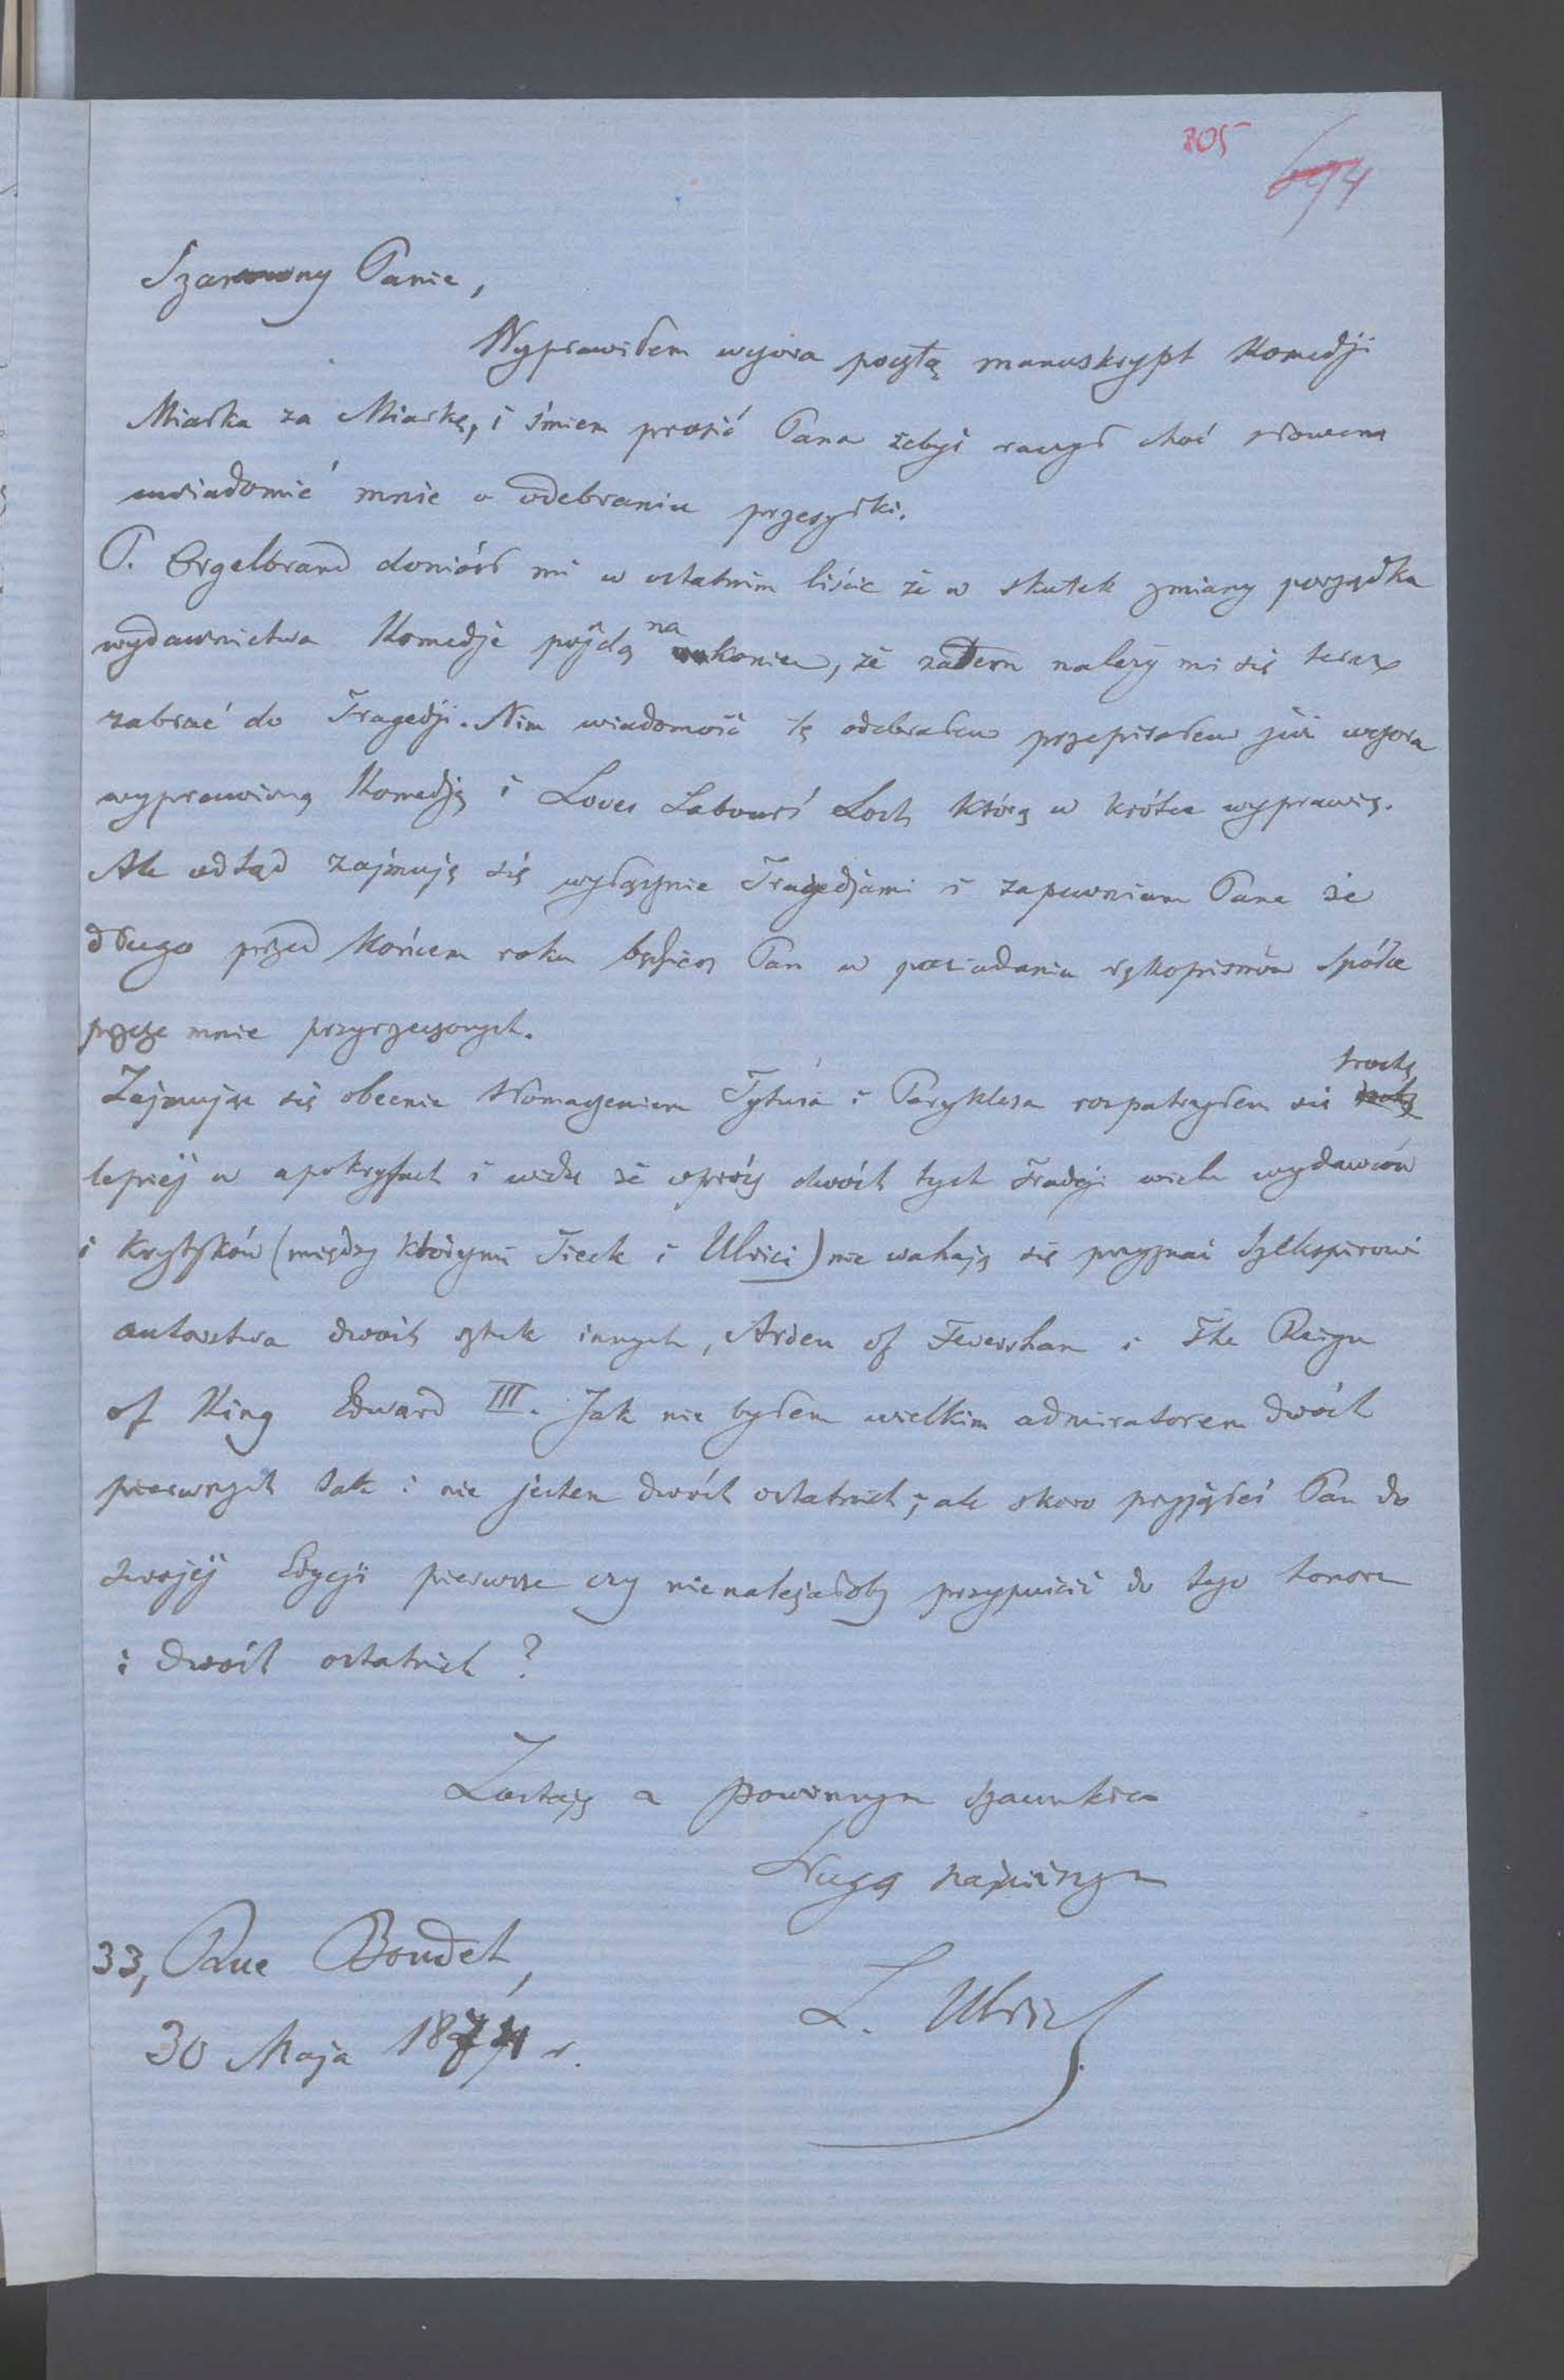 805
694
Szanowny Panie,
Wyprawiłem wczora pocztą manuskrypt Komedji
Miarka za Miarkę, i śmiem prosić Pana żebyś raczył choć słowem
uwiadomić mnie o odebraniu przesyłki.
P. Orgelbrand doniósł mi w ostatnim liście że w skutek zmiany porządku
wydawnictwa Komedje pójdą na koniec, że zatem należy mi się teraz
zabrać do Tragedji. Nim wiadomość tę odebrałem przepisałem już wczora
wyprawioną Komedję i Loves Labours' Lost, którą w krótce wyprawię.
Ale odtąd zajmuję się wyłącznie Tragedjami i zapewniam Pana że
długo przed końcem roku będziesz Pan w posiadaniu rękopismów Spółce
przeze mnie przyrzeczonych.
Zajmując się obecnie tłomaczeniem Tytusa i Peryklesa rozpatrzyłem się trochę
lepiéj w apokryfach i widzę że oprócz dwóch tych Tradeji wielu wydawców
i Krytyków (między którymi Tieck i Ulrici) nie wahają się przyznać Szekspirowi
autorstwa dwóch sztuk innych, Arden of Feversham i The Reign
of King Edward III. Jak nie byłem wielkim admiratorem dwóch
pierwszych tak i nie jestem dwóch ostatnich; ale skoro przyjąłeś Pan do
swojéj Edycji pierwsze czy nienależałoby przypuścić do tego honoru
i dwóch ostatnich?
Zostaję z powinnym szacunkiem
Sługą najniższym
L. Ulrich
33, Rue Boudet,
30 Maja 1874 r.